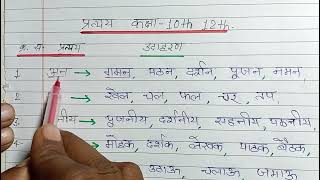 प्रत्यय कक्षा-10th 12th.
क्र. सं. प्रत्यय उदाहरण
1 अन → गमन, पठन, दर्शन, पूजन, नमन
2 → खेल, चल, फल, चर, तप
नीय → पूजनीय, दर्शनीय, सहनीय, पठनीय
4- → मोहक, दर्शक, लेखक, पाठक, बैठक
उठाऊ, चलाऊ, जमाऊ